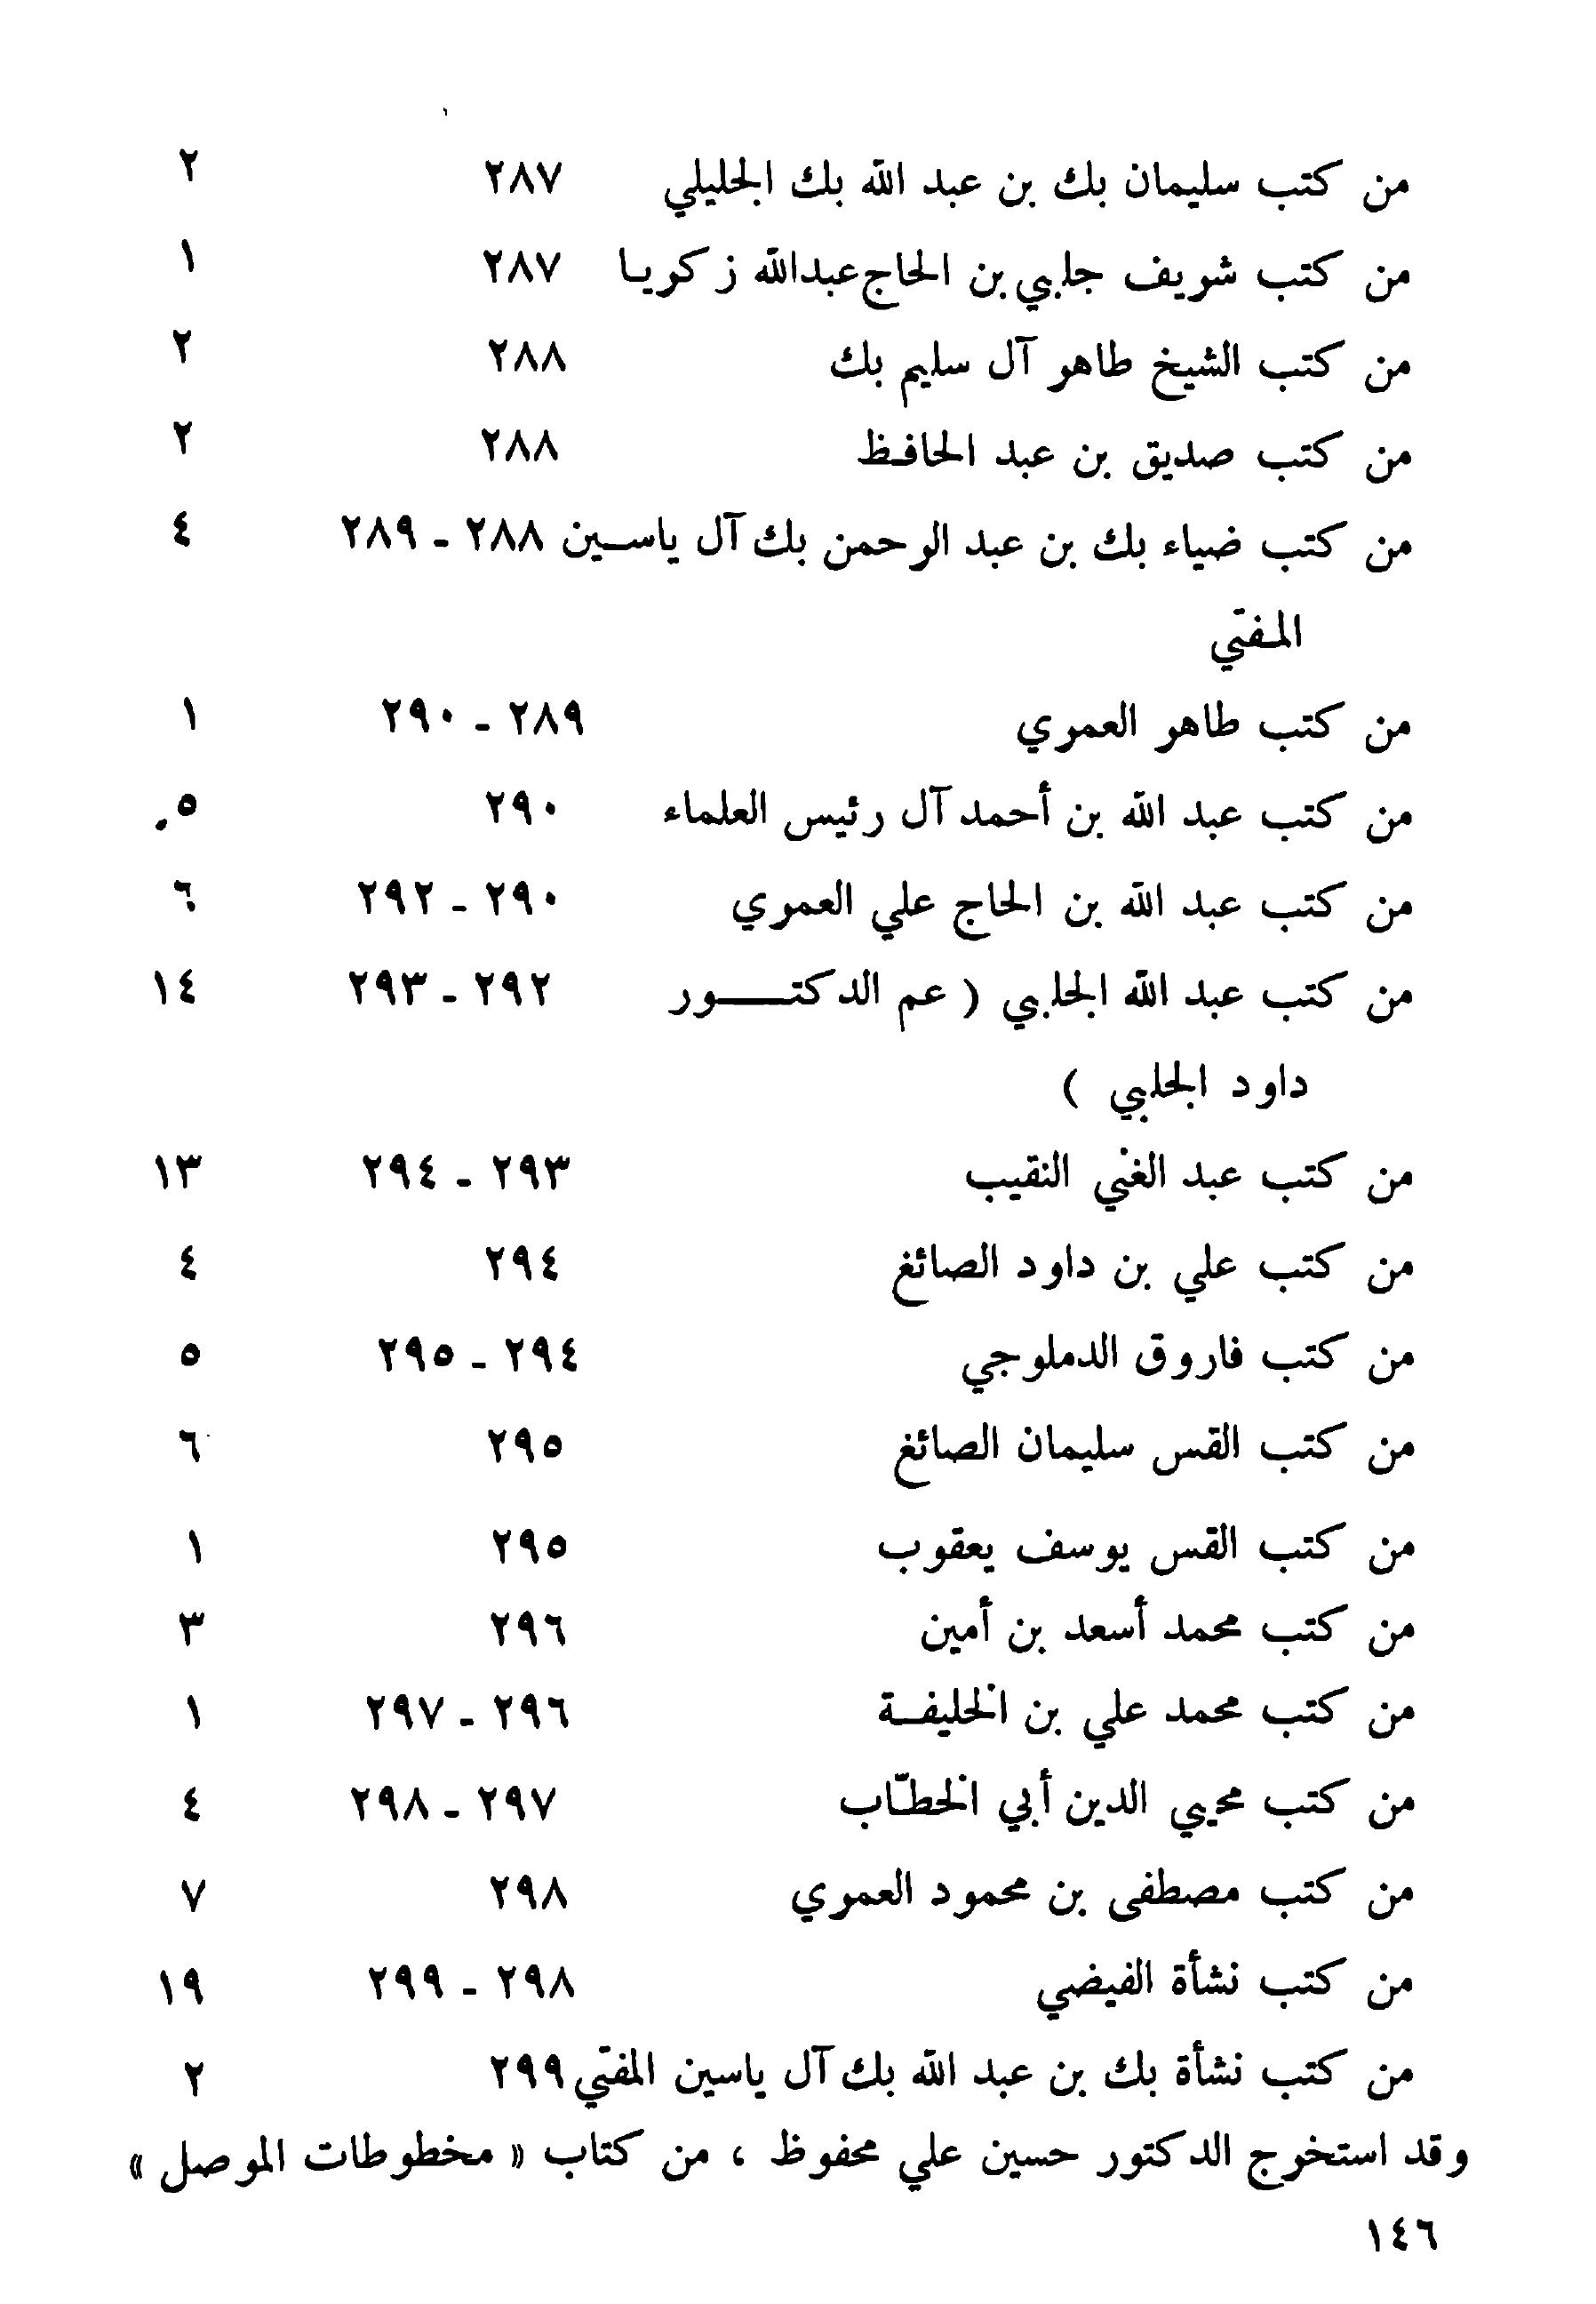 من كتب سليمان بك بن عبد الله بك الجليلي ٢٨٧ ٢
من كتب شريف جلبي بن الحاج عبدالله زكريا ٢٨٧ ١
من كتب الشيخ طاهر آل سليم بك ٢٨٨ ٢
من كتب صديق بن عبد الحافظ ٢٨٨ ٢
من كتب ضياء بك بن عبد الرحمن بك آل ياسين ٢٨٨ - ٢٨٩ ٤
المفتي
من كتب طاهر العمري ٢٨٩ - ٢٩٠ ١
من كتب عبد الله بن أحمد آل رئيس العلماء ٢٩٠ ٥
من كتب عبد الله بن الحاج علي العمري ٢٩٠ - ٢٩٢ ٦
من كتب عبد الله الجلبي ( عم الدكتور ٢٩٢ - ٢٩٣ ١٤
داود الجلبي )
من كتب عبد الغني النقيب ٢٩٣ - ٢٩٤ ١٣
من كتب علي بن داود الصائغ ٢٩٤ ٤
من كتب فاروق الدملوجي ٢٩٤ - ٢٩٥ ٥
من كتب القس سليمان الصائغ ٢٩٥ ٦
من كتب القس يوسف يعقوب ٢٩٥ ١
من كتب محمد أسعد بن أمين ٢٩٦ ٣
من كتب محمد علي بن الخليفة ٢٩٦ - ٢٩٧ ١
من كتب محيي الدين أبي الخطّاب ٢٩٧ - ٢٩٨ ٤
من كتب مصطفى بن محمود العمري ٢٩٨ ٧
من كتب نشأة الفيضي ٢٩٨ - ٢٩٩ ١٩
من كتب نشأة بك بن عبد الله بك آل ياسين المفتي ٢٩٩ ٢
وقد استخرج الدكتور حسين علي محفوظ ، من كتاب « مخطوطات الموصل »
١٤٦